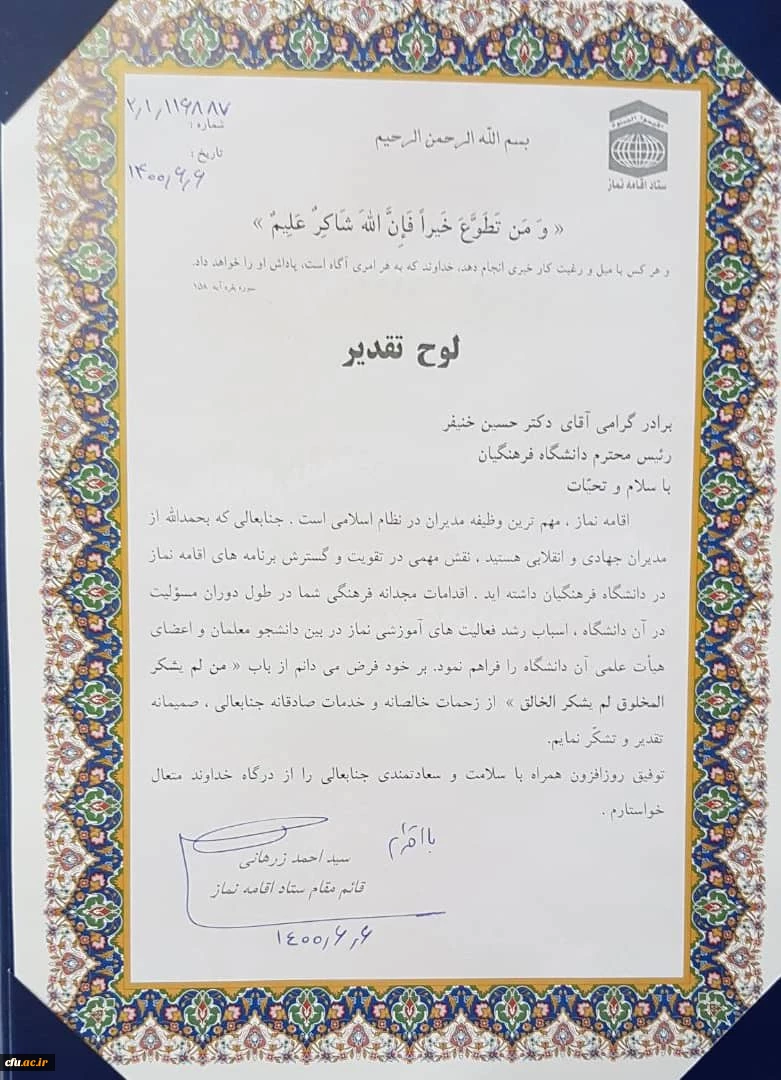 ۲٫۱٫۱۱۶۸۸۷
شماره :
تاریخ :
۱۴۰۰٫۶٫۶
اقیموا الصلوة
ستاد اقامه نماز
بسم الله الرحمن الرحیم
« وَ مَن تَطَوَّعَ خَیراً فَإِنَّ اللهَ شَاکِرٌ عَلِیمٌ »
و هر کس با میل و رغبت کار خیری انجام دهد، خداوند که به هر امری آگاه است، پاداش او را خواهد داد.
سوره بقره آیه ۱۵۸
لوح تقدیر
برادر گرامی آقای دکتر حسین خنیفر
رئیس محترم دانشگاه فرهنگیان
با سلام و تحیّات
اقامه نماز ، مهم ترین وظیفه مدیران در نظام اسلامی است . جنابعالی که بحمدالله از
مدیران جهادی و انقلابی هستید ، نقش مهمی در تقویت و گسترش برنامه های اقامه نماز
در دانشگاه فرهنگیان داشته اید . اقدامات مجدانه فرهنگی شما در طول دوران مسؤلیت
در آن دانشگاه ، اسباب رشد فعالیت های آموزشی نماز در بین دانشجو معلمان و اعضای
هیأت علمی آن دانشگاه را فراهم نمود. بر خود فرض می دانم از باب « من لم یشکر
المخلوق لم یشکر الخالق » از زحمات خالصانه و خدمات صادقانه جنابعالی ، صمیمانه
تقدیر و تشکّر نمایم.
توفیق روزافزون همراه با سلامت و سعادتمندی جنابعالی را از درگاه خداوند متعال
خواستارم .
با احترام
سید احمد زرهانی
قائم مقام ستاد اقامه نماز
۱۴۰۰٫۶٫۶
cfu.ac.ir